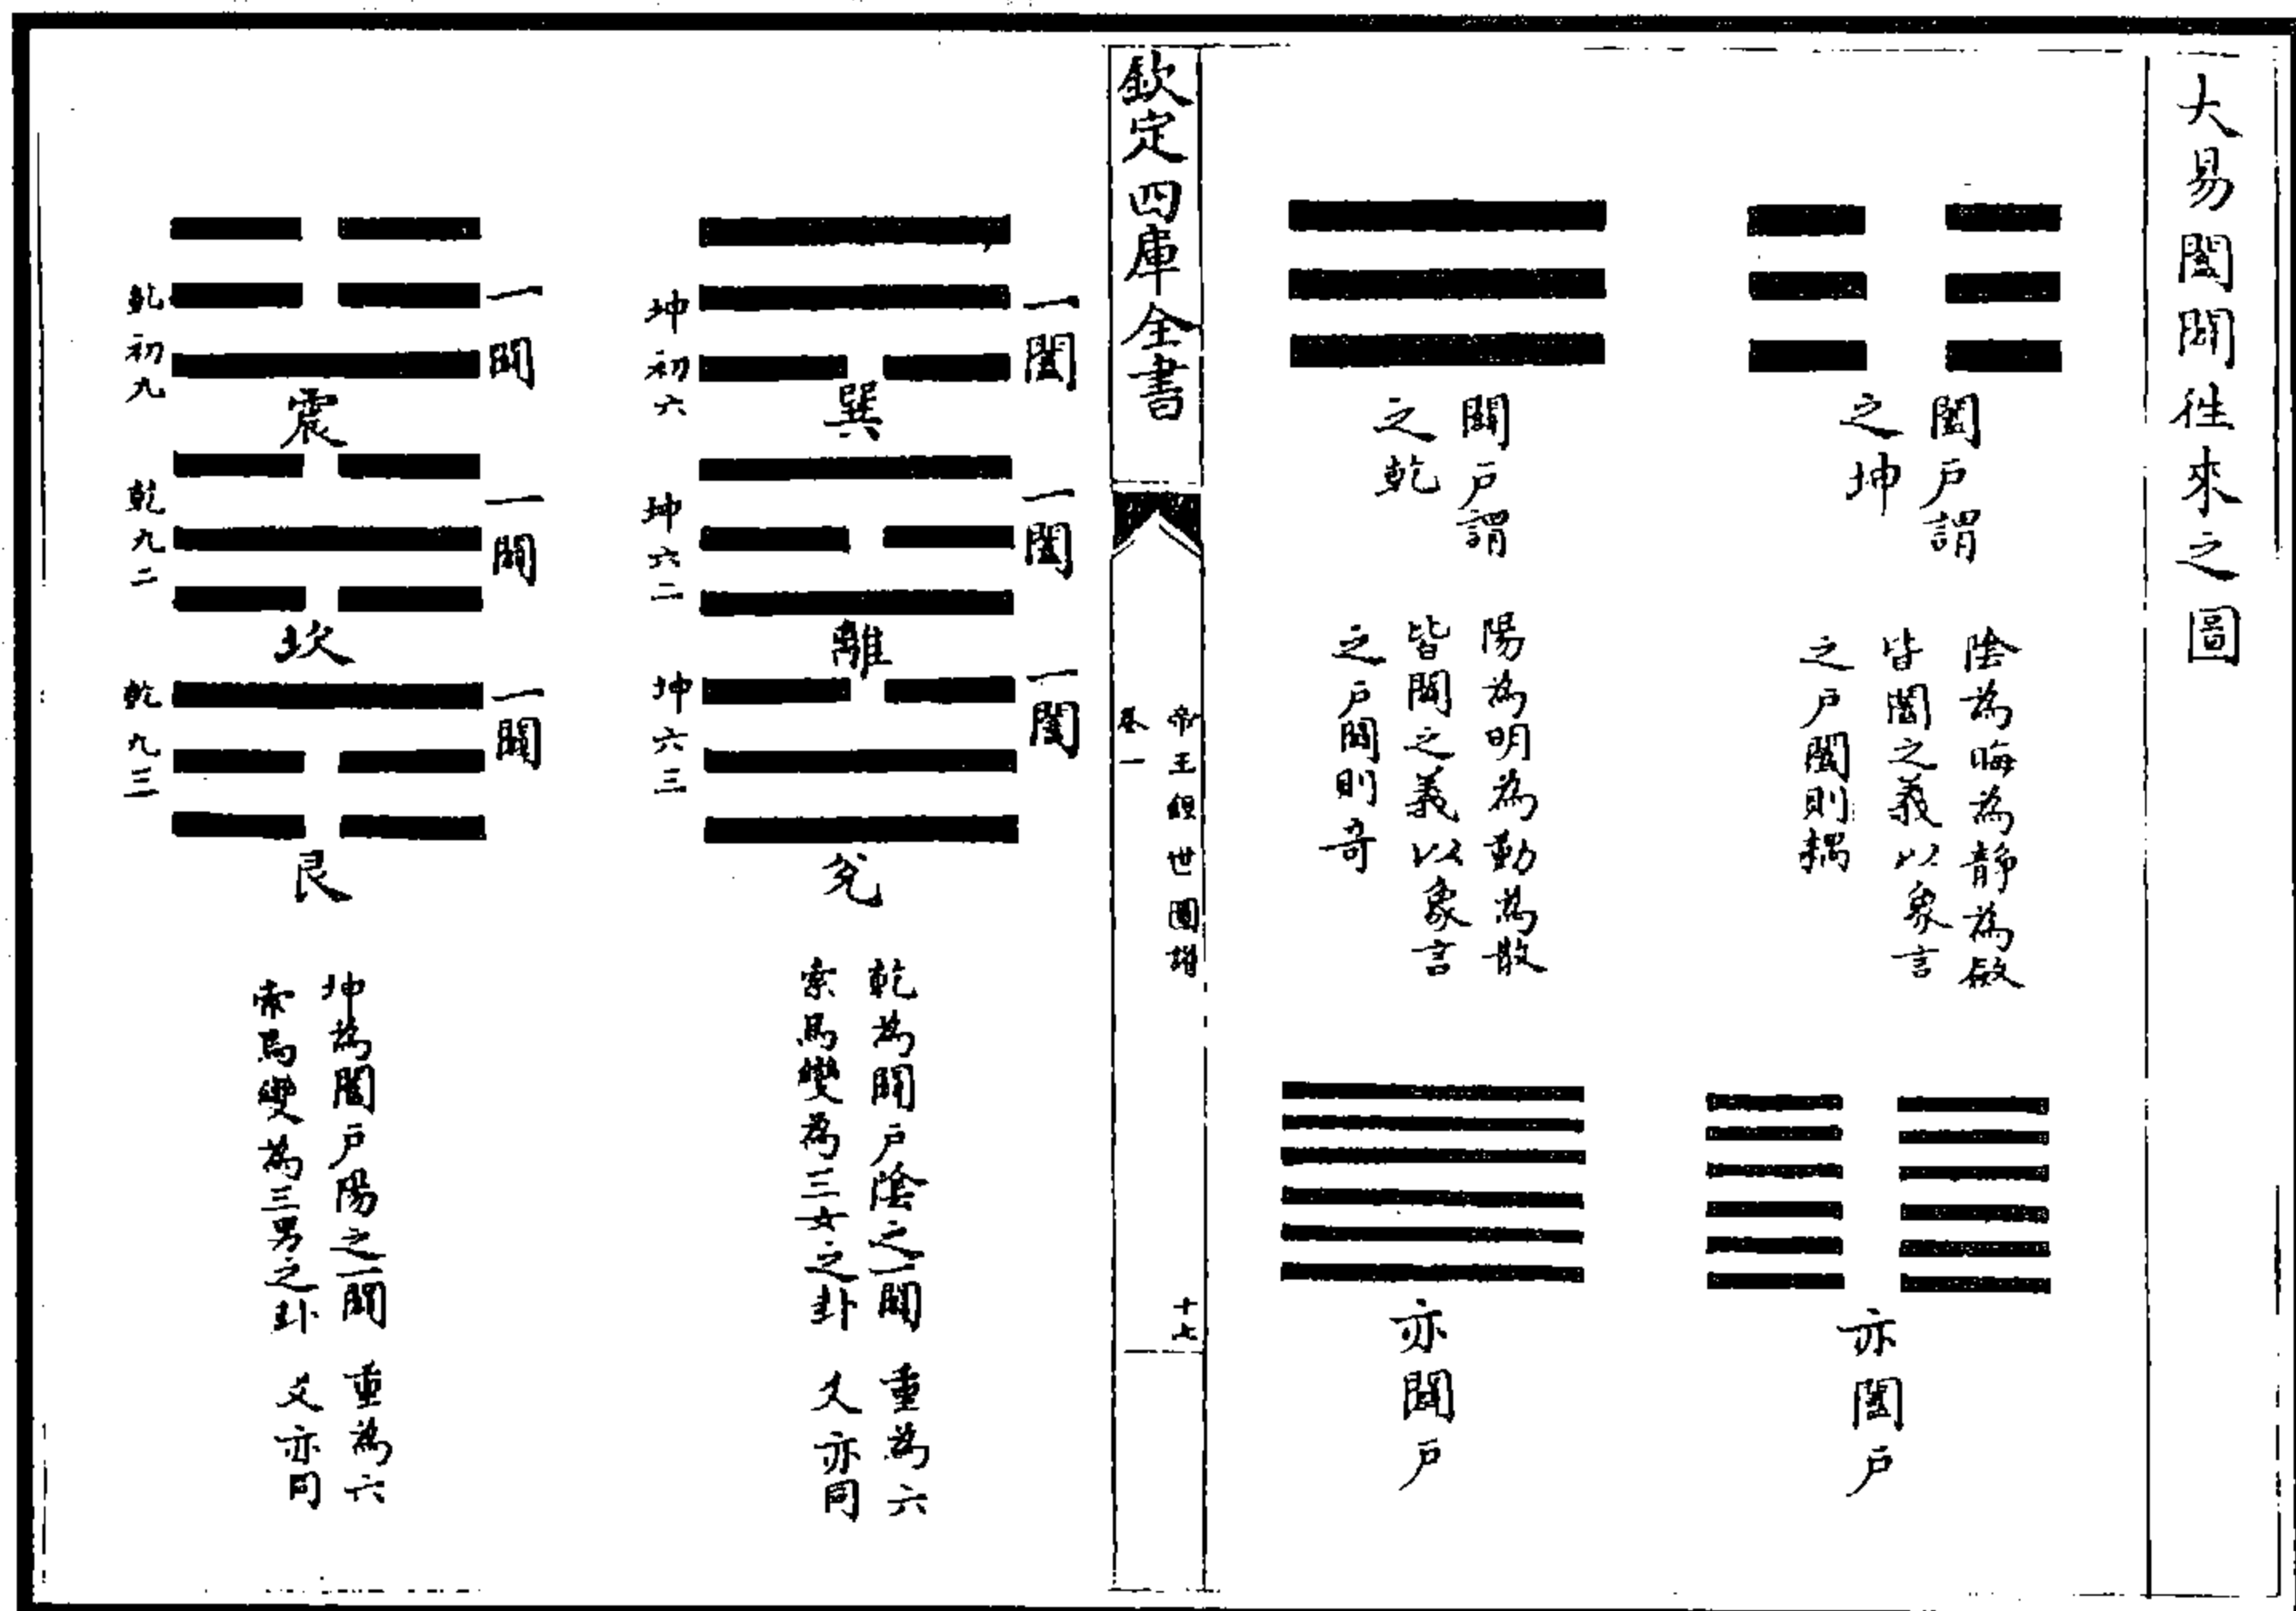 大易闔闢徃來之圖
闔戶謂
之坤
陰為晦為靜為歛
皆闔之義以象言
之戶闔則耦
亦闔戶
闢戶謂
之乾
陽為明為動為散
皆闢之義以象言
之戶闢則奇
亦闢戶
欽定四庫全書
帝王經世圖譜
卷一
十七
一闔
坤初六
巽
一闔
坤六二
離
一闔
坤六三
兌
乾為闢戶陰之一闢
索焉變為三女之卦
重為六
爻亦同
一闢
乾初九
震
一闢
乾九二
坎
一闢
乾九三
艮
坤為闔戶陽之一闢
索焉變為三男之卦
重為六
爻亦同